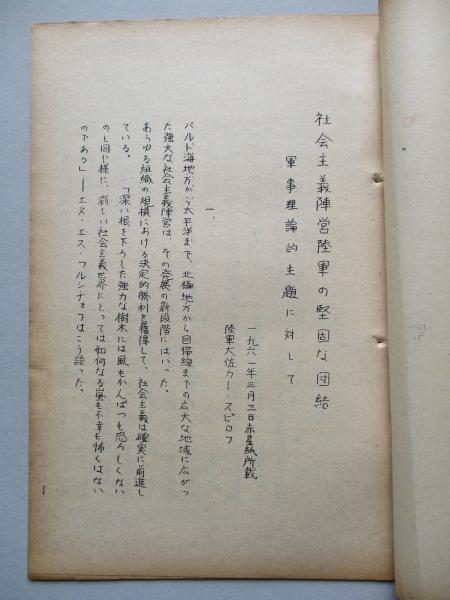 社会主義陣営陸軍の堅固な団結
軍事理論的主題に対して
一九六一年三月三日赤星紙所載
陸軍大佐カー・スピロフ
一、
バルト海地方から太平洋まで、北極地方から回帰線までの広大な地域に広がっ
た強大な社会主義陣営は、その発展の新段階にはいった。
あらゆる組織の規模における決定的勝利を獲得して、社会主義は確実に前進し
ている。「深い根を下ろした強力な樹木には風もかんばつも恐ろしくない
のと同じ様に、新しい社会主義世界にとっては如何なる嵐も不幸も怖くはない
のである」―エヌ・エス・フルシチョフはこう語った。
1